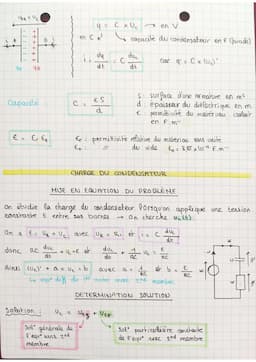 q = C × Uc → en V
en C
capacité du condensateur en F (farade)
i = dq/dt = C duc/dt car q = C × (uc)
Capacité
C = εS/d
S : surface d'une armature en m²
d : épaisseur du diélectrique en m
ε : permittivité du matériau isolant
en F.m⁻¹
ε = ε₀ εr
εr : permittivité relative du matériau sans unité
ε₀ : " du vide ε₀ = 8,85 × 10⁻¹² F.m⁻¹
CHARGE DU CONDENSATEUR
MISE EN EQUATION DU PROBLÈME
On étudie la charge du condensateur lorsqu'on applique une tension
constante E entre ses bornes → On cherche uc(t)
On a E = UR + Uc avec UR = Ri et i = C duc/dt
donc RC duc/dt + uc = E duc/dt + 1/RC uc = E/RC
Ainsi (uc)' + a × uc = b avec a = 1/RC et b = E/RC
1er ordre avec 2nd membre
DETERMINATION SOLUTION
Solution : uc =
Sol° générale de
l'eq° sans 2nd
membre
Sol° particulière constante
de l'eq° avec 2nd membre